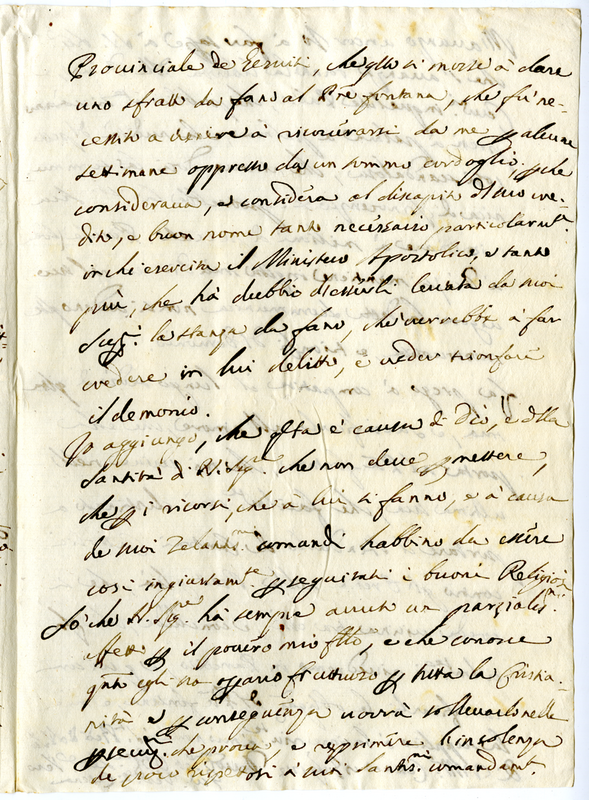 Provinciale de Gesuiti, che gllo si mosse à dare
uno sfratto da fano al Pre fontana, che fù ne-
cessito a venire à ricoverarsi da me p alcune
settimane oppresso da un sommo cordoglio, pche
considerava, e considera al discapito del suo cre-
dito, e buon nome tanto necessario particolarmte
in chi esercita il Ministero Apostolico, e tanto
più, che hà dubbio di essersli levata da suoi
la stanza di fano, che verrebbe à far
credere in lui delitto, e veder trionfare
il demonio.
Io aggiungo, che qsta è causa di Dio, e della
Santità di N. Sigre che non deve pmettere,
che p i ricorsi, che à lui si fanno, e à causa
de suoi Zelantmi comandi habbino da essere
così ingiustamte pseguitati i buoni Religiosi
Sò che N. Sigre hà sempre avuto un parzialismo
affetto p il povero mio fllo, e che conosce
qnto egli sia opario fruttuoso p tutta la Cristia-
nità e p conseguenza vorrà sollevarlo nelle
psecuzni che prova, e reprimere l'insolenza
de poco rispettosi à suoi Santismi comandamti